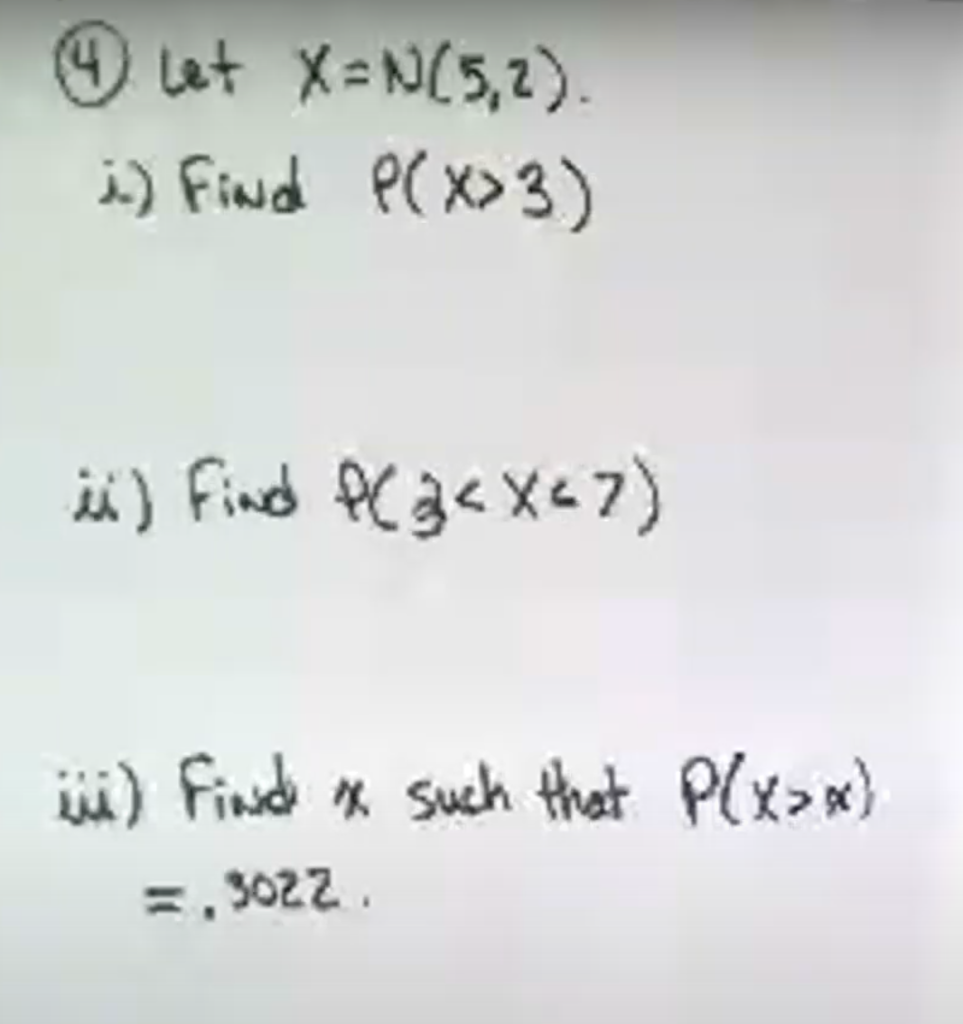 ④ Let X=N(5,2).
i) Find P(X>3)
ii) Find P(3<X<7)
iii) Find x such that P(X>x)
=.3022.